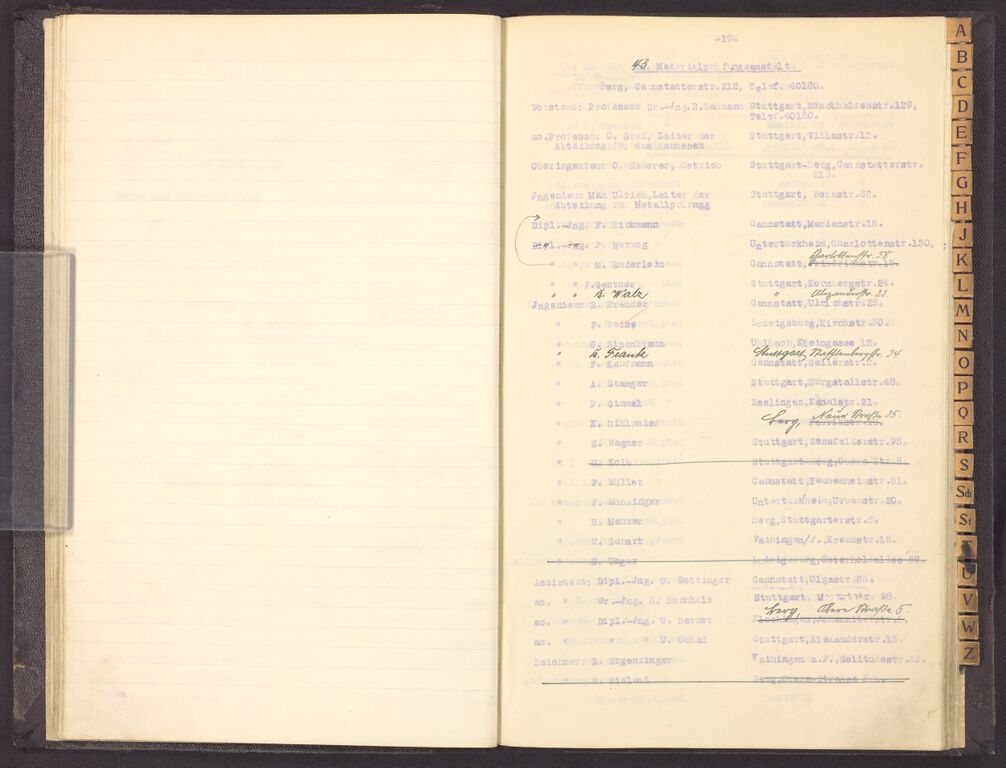 -17-
43. Materialprüfungsanstalt.
Berg, Cannstatterstr.212, Telef. 40180.
Vorstand: Professor Dr.-Jng.R.Baumann Stuttgart,Mönchhaldenstr.129,
Telef.40180.
ao.Professor O. Graf, Leiter der Stuttgart,Villastr.12.
Abteilung für das Bauwesen
Oberingenieur O. Haberer, Betrieb Stuttgart-Berg,Cannstatterstr.
212.
Jngenieur Max Ulrich,Leiter der Stuttgart, Wernstr.82.
Abteilung für Metallprüfugg
Dipl.-Jng. F. Bickmann Cannstatt,Marienstr.15.
Dipl.-Jng. P. Herzog Untertürkheim,Charlottenstr.130,
Charlottenstr. 58
" " M. Enderlein Cannstatt,
" " F.Gentner Stuttgart, Kornbergstr.24.
" " D. Walz " Alexanderstr. 23
Jngenieur E. Brenner Cannstatt,Ulrichstr.25.
" F. Ludwigsburg,Kirchstr.30.
" G. Eisenbraun Uhlbach, 12.
" D. Frank Stuttgart, Stafflenbergstr. 34
" P. Kaufmann Cannstatt,
" A. Stanger Stuttgart,Burgstallstr.48.
" D. Gimmel Esslingen,Kanalstr.21.
" K. Bihlmaier Berg, Neue Straße 35.
" S. Wagner Stuttgart,Senefelderstr.95.
" H. Kolb Stuttgart-Berg,Obere Str.5.
" P. Müller Cannstatt,Taubenheimstr.51.
" F. Munzinger Untertürkheim,Urbanstr.20.
" B. Mehrer Berg,Stuttgarterstr.6.
" W. Schart Vaihingen/F., 15.
" E. Unger Ludwigsburg,Osterholzallee 59.
Assistent: Dipl.-Jng. C. Dettinger Cannstatt,Olgastr.
ao. " Dr.-Jng. H. Buchholz Stuttgart, 28.
ao. " Dipl.-Jng. G. Barner Berg, Obere Straße 5.
ao. " " " U. Schad Stuttgart,Alexanderstr.
Zeichner: E. Ergenzinger Vaihingen a.F.,Solitudestr.
" W. Wieland Berg,Obere Strasse
A
B
C
D
E
F
G
H
J
K
L
M
N
O
P
Q
R
S
Sch
St
T
U
V
W
Z